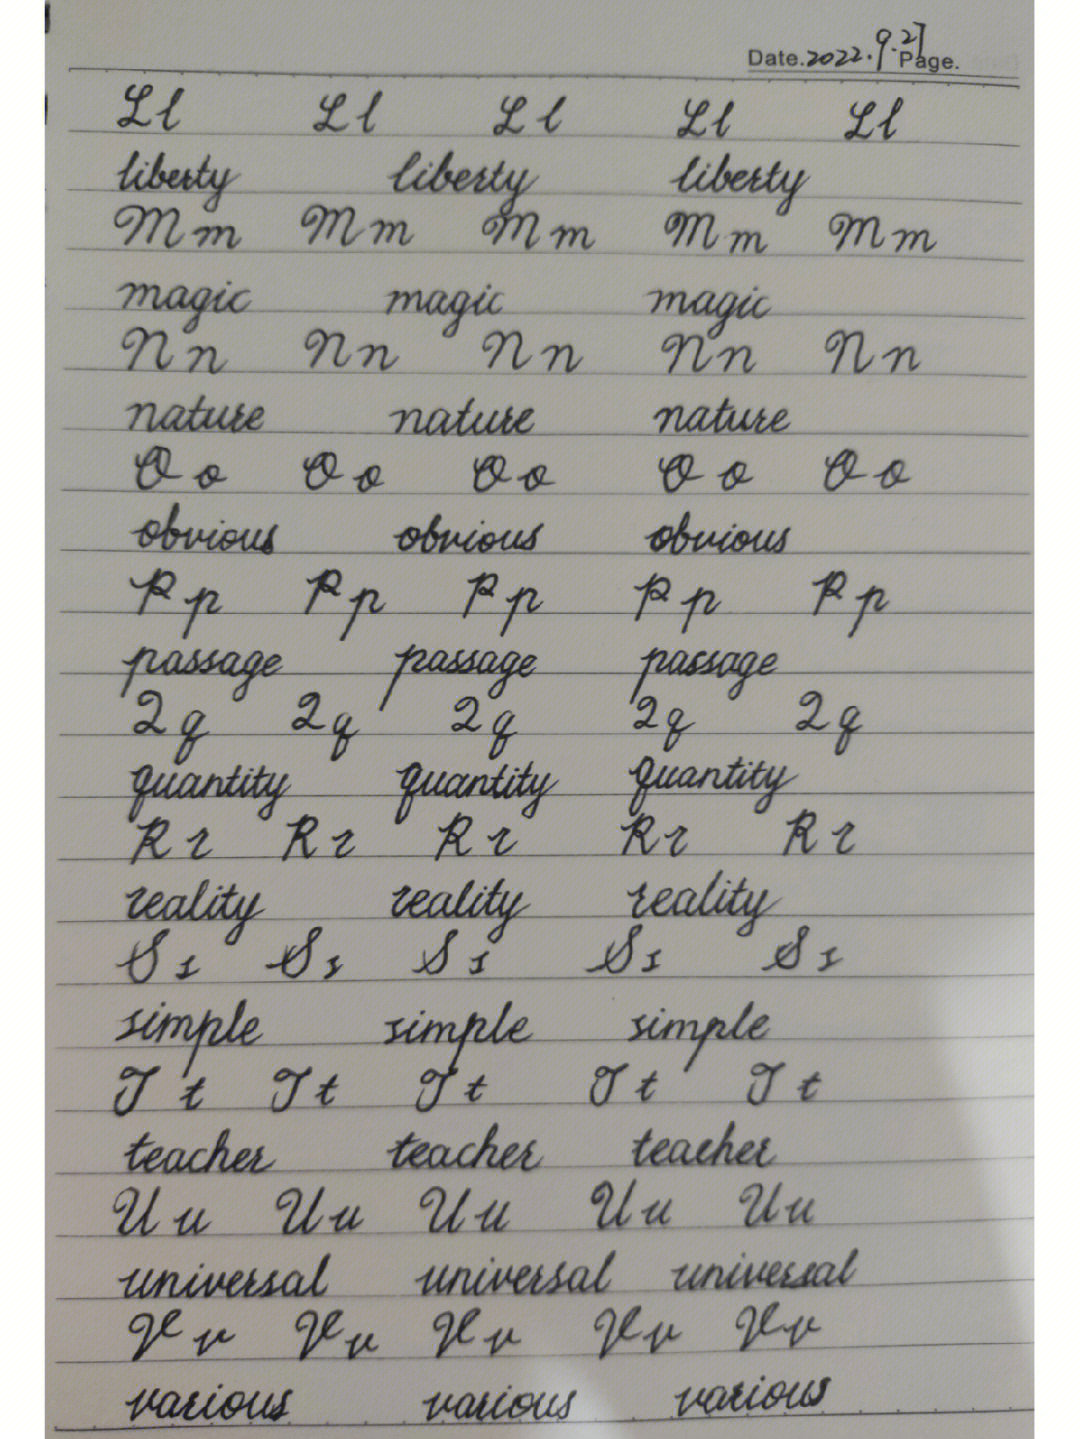 Date.2022.9.27 Page.
Ll Ll Ll Ll Ll
liberty liberty liberty
Mm Mm Mm Mm Mm
magic magic magic
Nn Nn Nn Nn Nn
nature nature nature
Oo Oo Oo Oo Oo
obvious obvious obvious
Pp Pp Pp Pp Pp
passage passage passage
Qq Qq Qq Qq Qq
quantity quantity quantity
Rr Rr Rr Rr Rr
reality reality reality
Ss Ss Ss Ss Ss
simple simple simple
Tt Tt Tt Tt Tt
teacher teacher teacher
Uu Uu Uu Uu Uu
universal universal universal
Vv Vv Vv Vv Vv
various various various